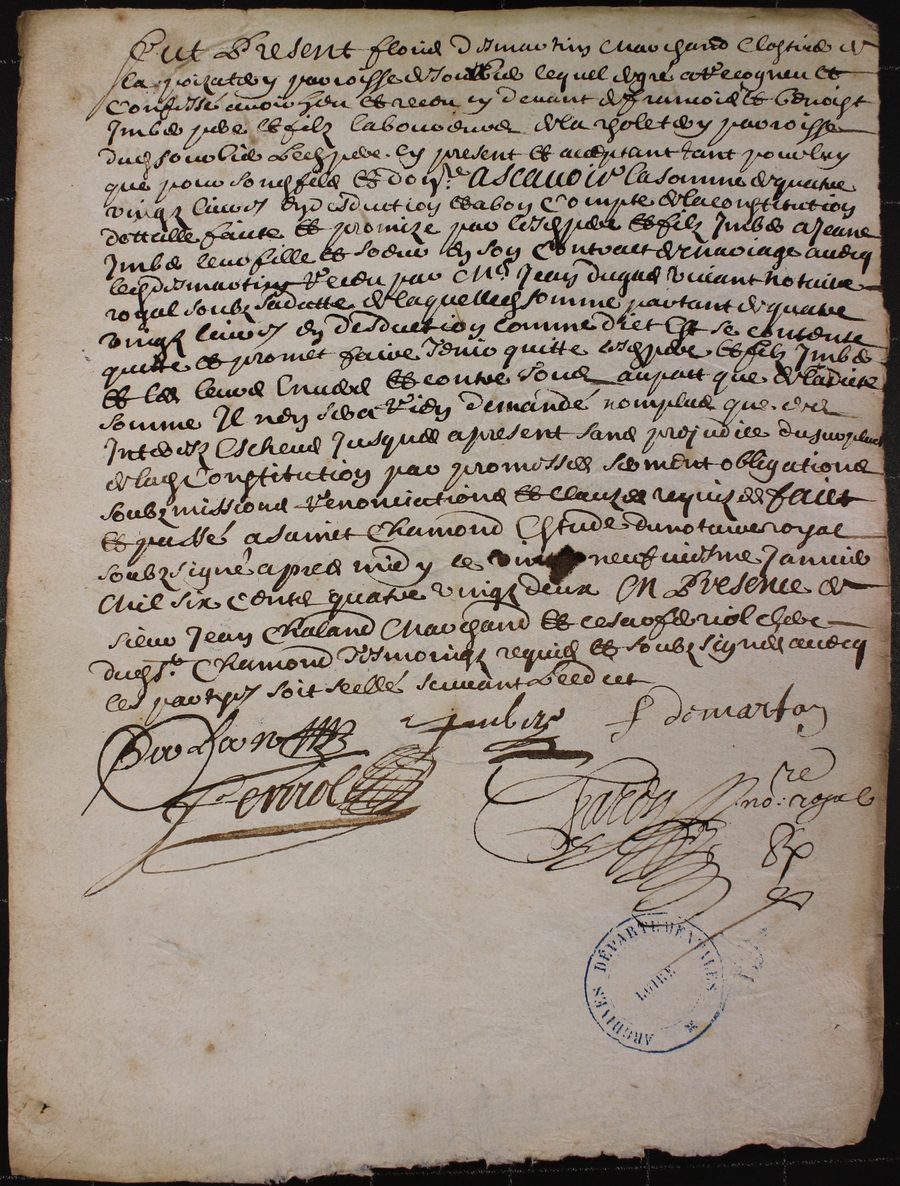 Fut Present Floris desmartin marchand clostrie de
la parroisse de lequel de gré a recogneu et
confessé avoir heu et receu cy devant de françois et benoist
Imbe pere et filz laboureurs de la parroisse
dud lechpere cy present et acceptant tant pour luy
que pour sond filz Ascavoir la somme de quatre
vingz livres en desduction et a bon compte de la constitution
dottalle faite et promize par lesd pere et filz Imbe a Jeane
Imbe leur fille et soeur en son contract de mariage avecq
led desmartin receu par me Jean vivant notaire
royal soubz sa datte de laquelle somme partant de quatre
vingz livres en desduction comme dict est se contente
quitte et promet faire tenir quitte lesd pere et filz Imbe
et les leurs envers et contre tous au pact que de ladicte
somme Il n'en sera rien demandé nomplus que des
Interestz escheus Jusques a present sans prejudice du surplus
de lad constitution par promesses serment obligations
soubzmissions renonciations et clauzes requizes faict
et passé a sainct Chamond estude du notaire royal
soubzsigné apres midy le vingt neufviesme Janvier
mil six cents quatre vingz deux En Presence de
sieur Jean Chaland marchand et
dud st Chamond tesmoingz requis et soubzsignes avecq
les partyes soit seellé suivant l'edict
Imbe f demartin
Ferriol
no.re royal
ARCHIVES DÉPARTEMENTALES
LOIRE